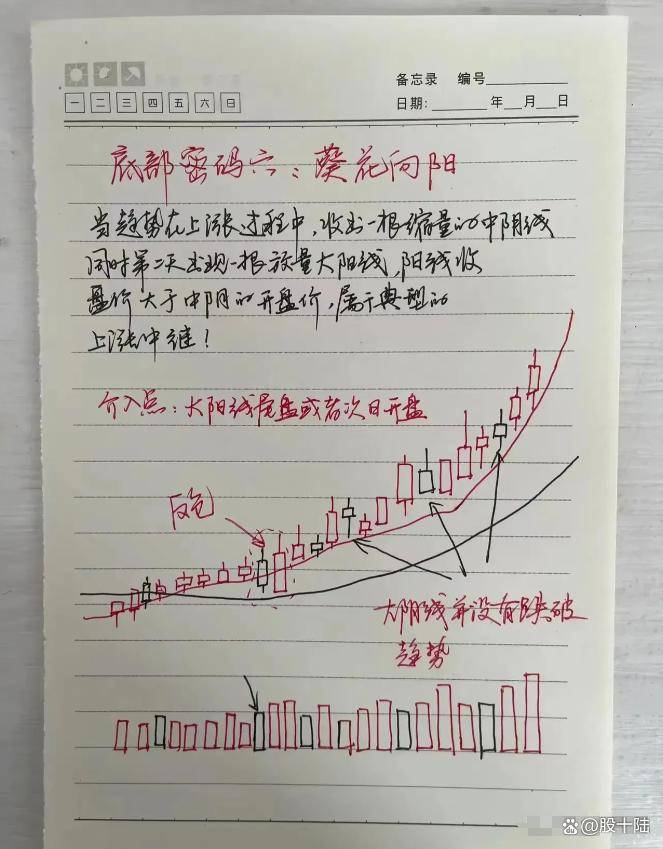 备忘录 编号
一 二 三 四 五 六 日
日期: 年 月 日
底部密码六:葵花向阳
当趋势在上涨过程中,收出一根缩量的中阴线
同时第二天出现一根放量大阳线,阳线收
盘价大于中阴的开盘价,属于典型的
上涨中继!
介入点:大阳线尾盘或者次日开盘
反包
大阴线并没有跌破
趋势
@股十陆